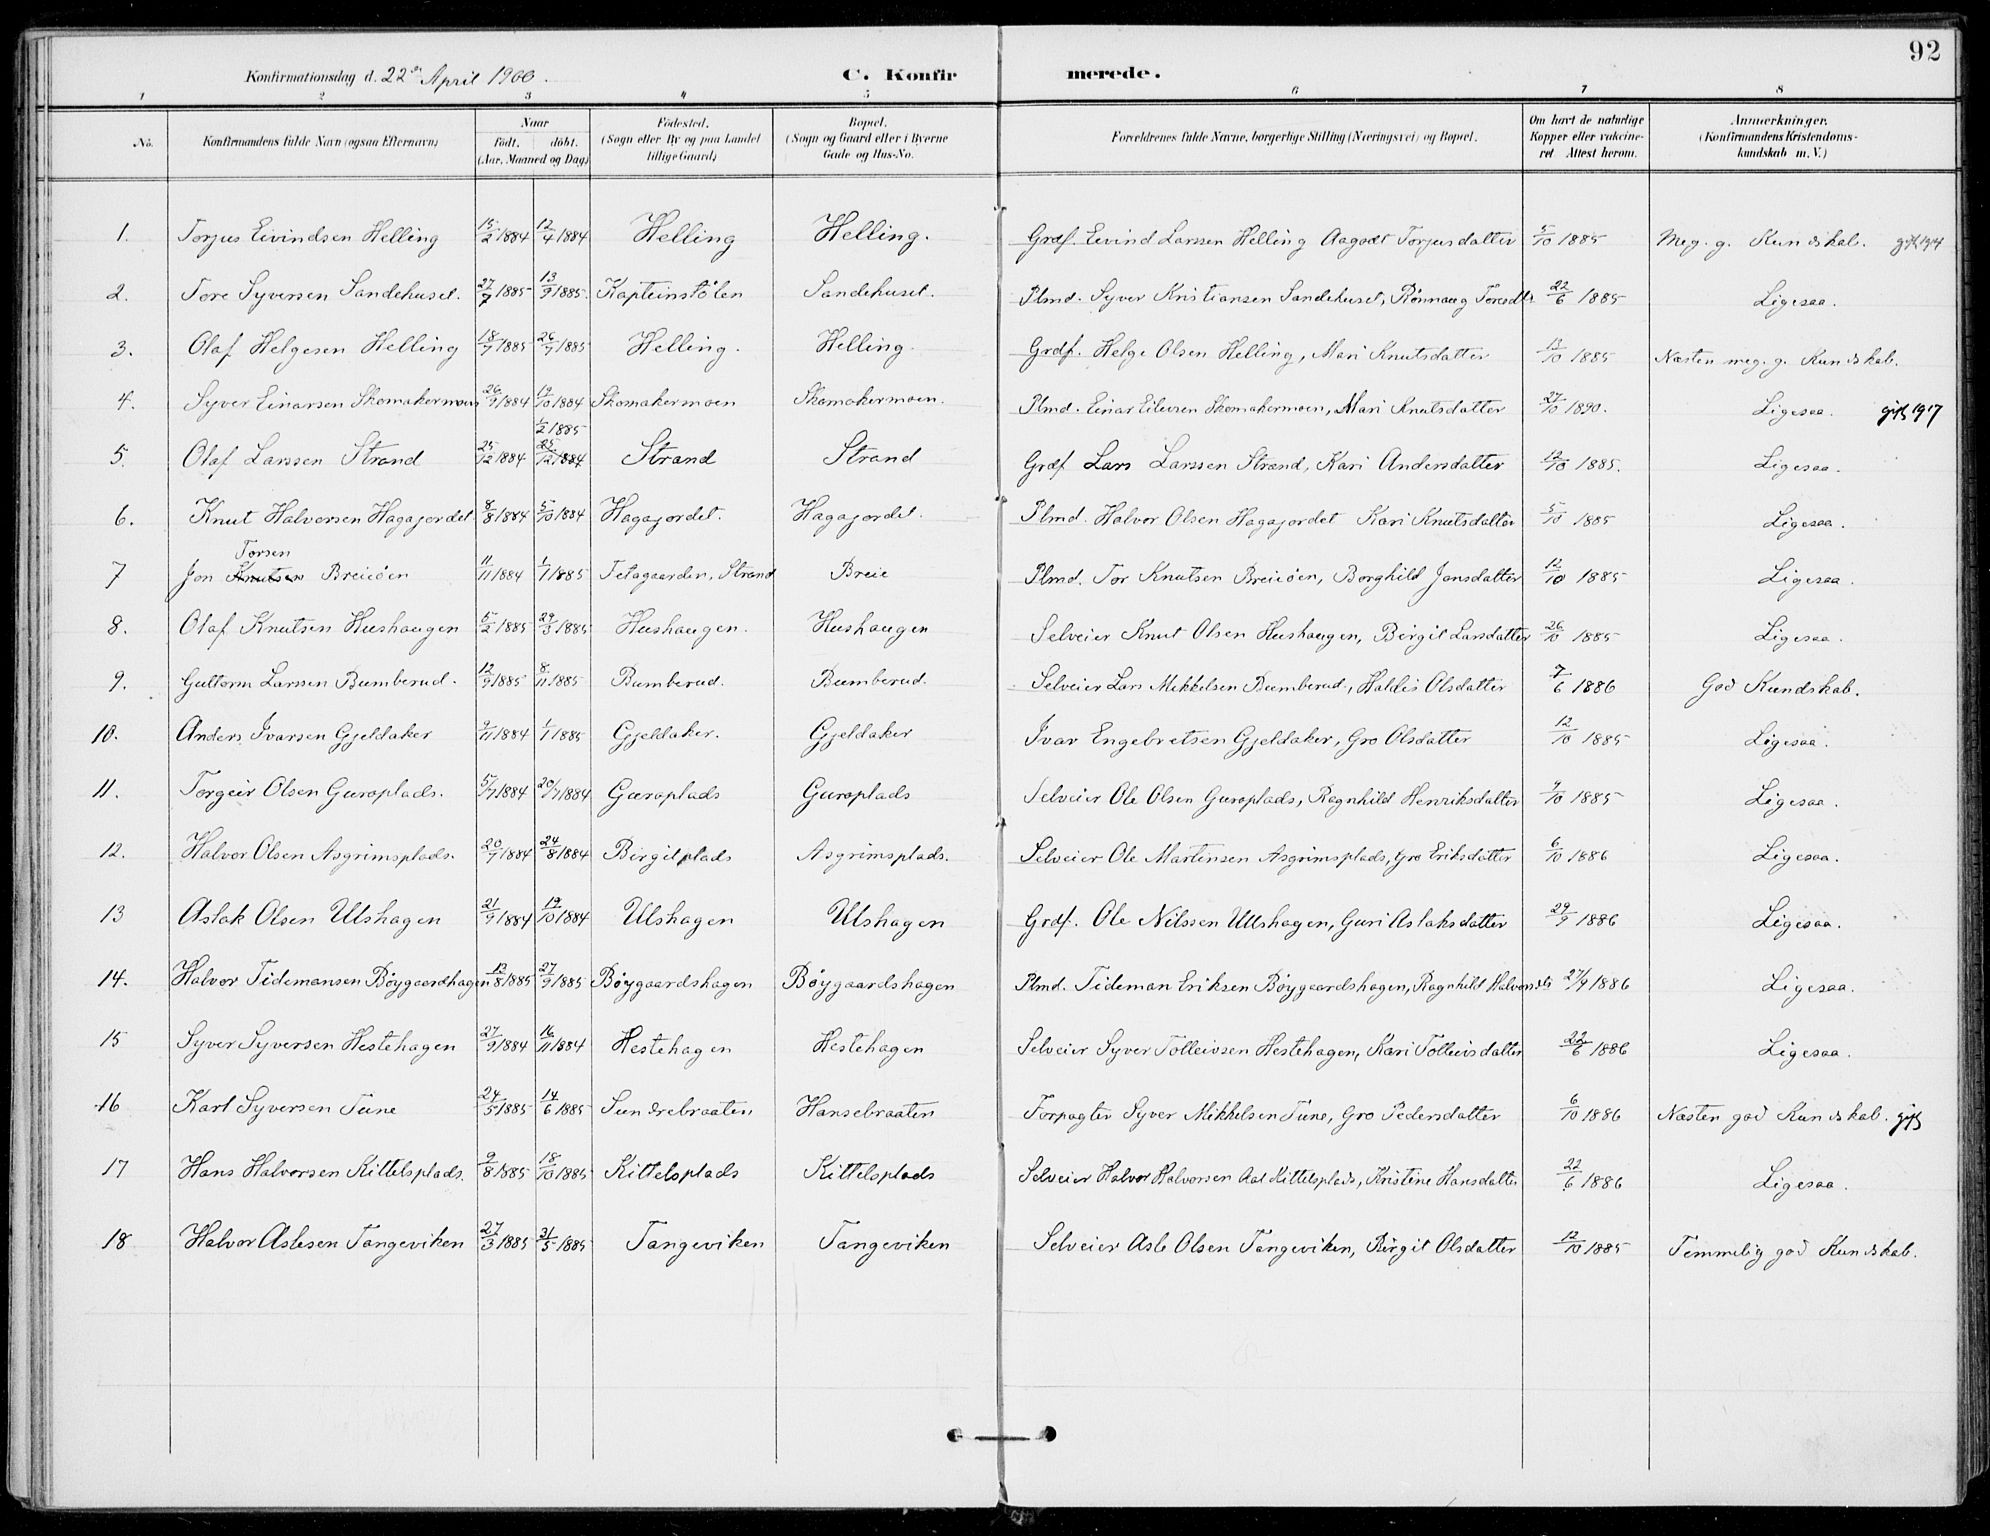 92
Konfirmationsdag d. 22de April 1900.
C. Konfirmerede.
1 2 3 4 5 6 7 8
No. Konfirmandens fulde Navn (ogsaa Efternavn) Naar født. døbt. (Aar, Maaned og Dag) Fødested. (Sogn eller By og paa Landet tillige Gaard) Bopæl. (Sogn og Gaard eller i Byerne Gade og Hus-No. Forældrenes fulde Navne, borgerlige Stilling (Næringsvei) og Bopæl. Om havt de naturlige Kopper eller vaccineret Attest herom. Anmerkninger. (Konfirmandens Kristendomskundskab m. V.)
1. Torjus Eivindsen Helling 15/2 1884 12/4 1884 Helling Helling. Grdf. Eivind Larssen Helling Aagodt Torjusdatter 5/10 1885 Meg. g. Kundskab. gift 1914
2. Tore Syversen Sandehuset. 27/7 1885 13/9 1885. Kapteinstölen Sandehuset. Plmd. Syver Kristiansen Sandehuset, Rönnaug Toresdtr 22/6 1885 Ligesaa.
3. Olaf Helgesen Helling 18/7 1885 26/7 1885 Helling. Helling. Grdf. Helge Olsen Helling, Mari Knutsdatter 13/10 1885 Næsten meg. g. Kundskab.
4. Syver Einarsen Skomakermoen 26/9 1884 19/10 1884 Skomakermoen Skomakermoen. Plmd. Einar Eilevsen Skomakermoen, Mari Knutsdatter 27/10 1890. Ligesaa. gift 1917
1/2 1885
5. Olaf Larssen Strand 25/12 1884 25/12 1884 Strand Strand Grdf Lars Larssen Strand, Kari Andersdatter 12/10 1885. Ligesaa.
6. Knut Halvorsen Hagajordet 8/8 1884 5/10 1884 Hagajordet. Hagajordet. Plmd. Halvor Olsen Hagajordet Kari Knutsdatter 5/10 1885 Ligesaa.
Torsen
7 Jon Knutsen Breieöen 11/11 1884 1/1 1885 Tetagaarden, Strand Breie Plmd. Tor Knutsen Breieöen, Borghild Jonsdatter 12/10 1885 Ligesaa.
8. Olaf Knutsen Hushaugen 5/2 1885 29/3 1885 Hushaugen. Hushaugen Selveier Knut Olsen Hushaugen, Birgit Larsdatter 26/10 1885 Ligesaa.
9. Guttorm Larssen Bumberud. 12/9 1885 8/11 1885 Bumberud. Bumberud. Selveier Lars Mekkelsen Bumberud, Haldis Olsdatter 7/6 1886 God Kundskab.
10. Anders Ivarsen Gjeldaker 9/11 1884 1/1 1885 Gjeldaker. Gjeldaker Ivar Engebretsen Gjeldaker, Gro Olsdatter 12/10 1885 Ligesaa.
11. Torgeir Olsen Guroplads. 5/7 1884 20/7 1884 Guroplads Guroplads Selveier Ole Olsen Guroplads, Ragnhild Henriksdatter 9/10 1885 Ligesaa.
12. Halvor Olsen Asgrimsplads. 20/7 1884 24/8 1884 Birgitplads Asgrimsplads. Selveier Ole Martensen Asgrimsplads, Gro Eriksdatter 6/10 1886 Ligesaa.
13 Aslak Olsen Ulshagen 21/9 1884 19/10 1884 Ulshagen Ulshagen Grdf. Ole Nilssen Ulshagen, Guri Aslaksdatter 29/9 1886 Ligesaa.
14. Halvor Tidemansen Böygaardhagen 12/8 1885 27/9 1885 Böygaardshagen Böygaardshagen Plmd. Tideman Eriksen Böygaardshagen, Ragnhild Halvorsdtr 27/9 1886 Ligesaa.
15 Syver Syversen Hestehagen 27/9 1884 16/11 1884 Hestehagen Hestehagen Selveier Syver Tolleivsen Hestehagen, Kari Tolleivsdatter 22/6 1886 Ligesaa.
16 Karl Syversen Tune 24/5 1885 14/6 1885 Sundrebraaten Hansebraaten Forpagter Syver Mikkelsen Tune, Gro Pedersdatter 6/10 1886 Næsten god Kundskab. gift
17 Hans Halvorsen Kittelsplads. 9/8 1885 18/10 1885 Kittelsplads Kittelsplads Selveier Halvor Halvorsen Aal Kittelsplads, Kristine Hansdatter 22/6 1886 Ligesaa.
18 Halvor Aslesen Tangeviken 27/3 1885 31/5 1885 Tangeviken Tangeviken Selveier Asle Olsen Tangeviken, Birgit Olsdatter 12/10 1885 Temmelig god Kundskab.